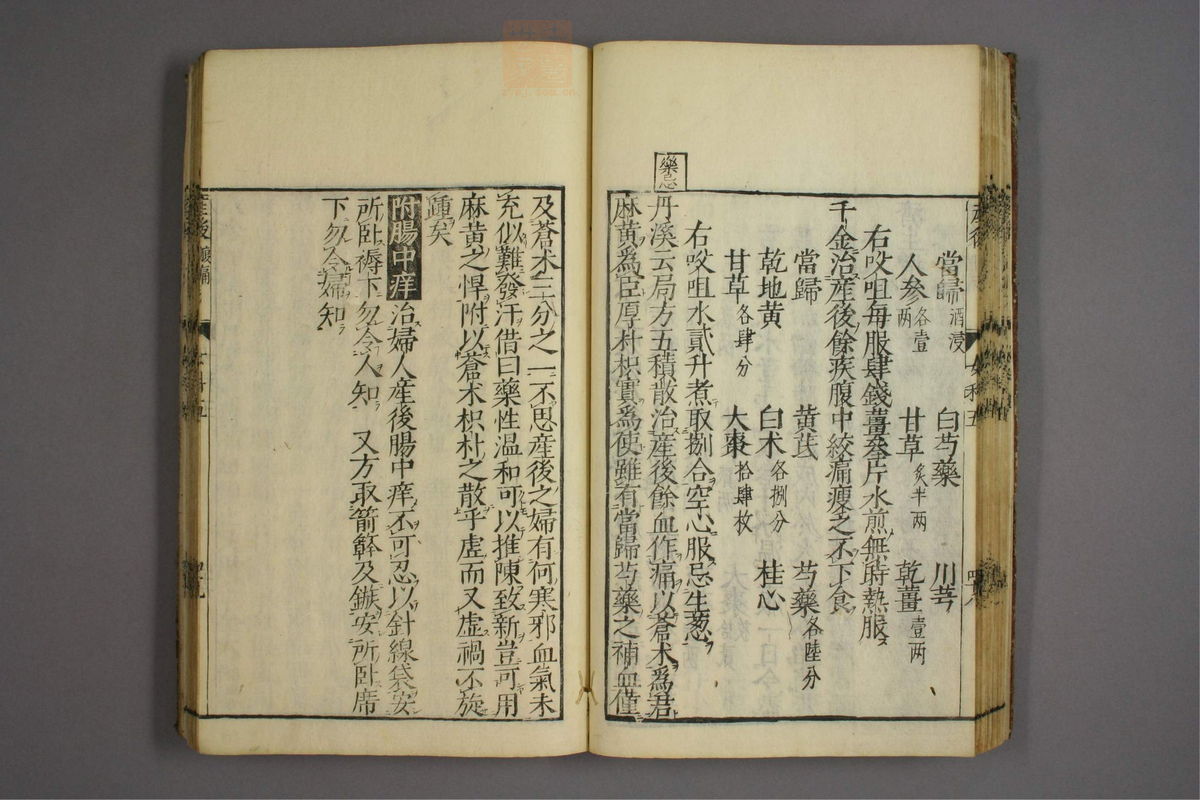 當歸酒浸 白芍藥 川芎
人參各壹两 甘草炙半两 乾薑壹两
右㕮咀每服肆錢薑叁片水煎無時熱服
千金治產後餘疾腹中絞痛瘦乏不下食
當歸 黄芪 芍藥各陸分
乾地黄 白术各捌分 桂心
甘草各肆分 大棗拾肆枚
右㕮咀水貳升煮取捌合空心服忌生葱
藥忌
丹溪云局方五積散治產後餘血作痛以蒼术爲君
麻黄爲臣厚朴枳實爲使雖有當歸芍藥之補血僅
及蒼术三分之一不思產後之婦有何寒邪血氣未
充似難發汗借曰藥性温和可以推陳致新豈可用
麻黄之悍附以蒼术枳朴之散乎虚而又虚禍不旋
踵矣
附腸中痒治婦人產後腸中痒不可忍以針線袋安
所卧褥下勿令人知 又方取箭簳及鏃安所卧席
下勿令婦知